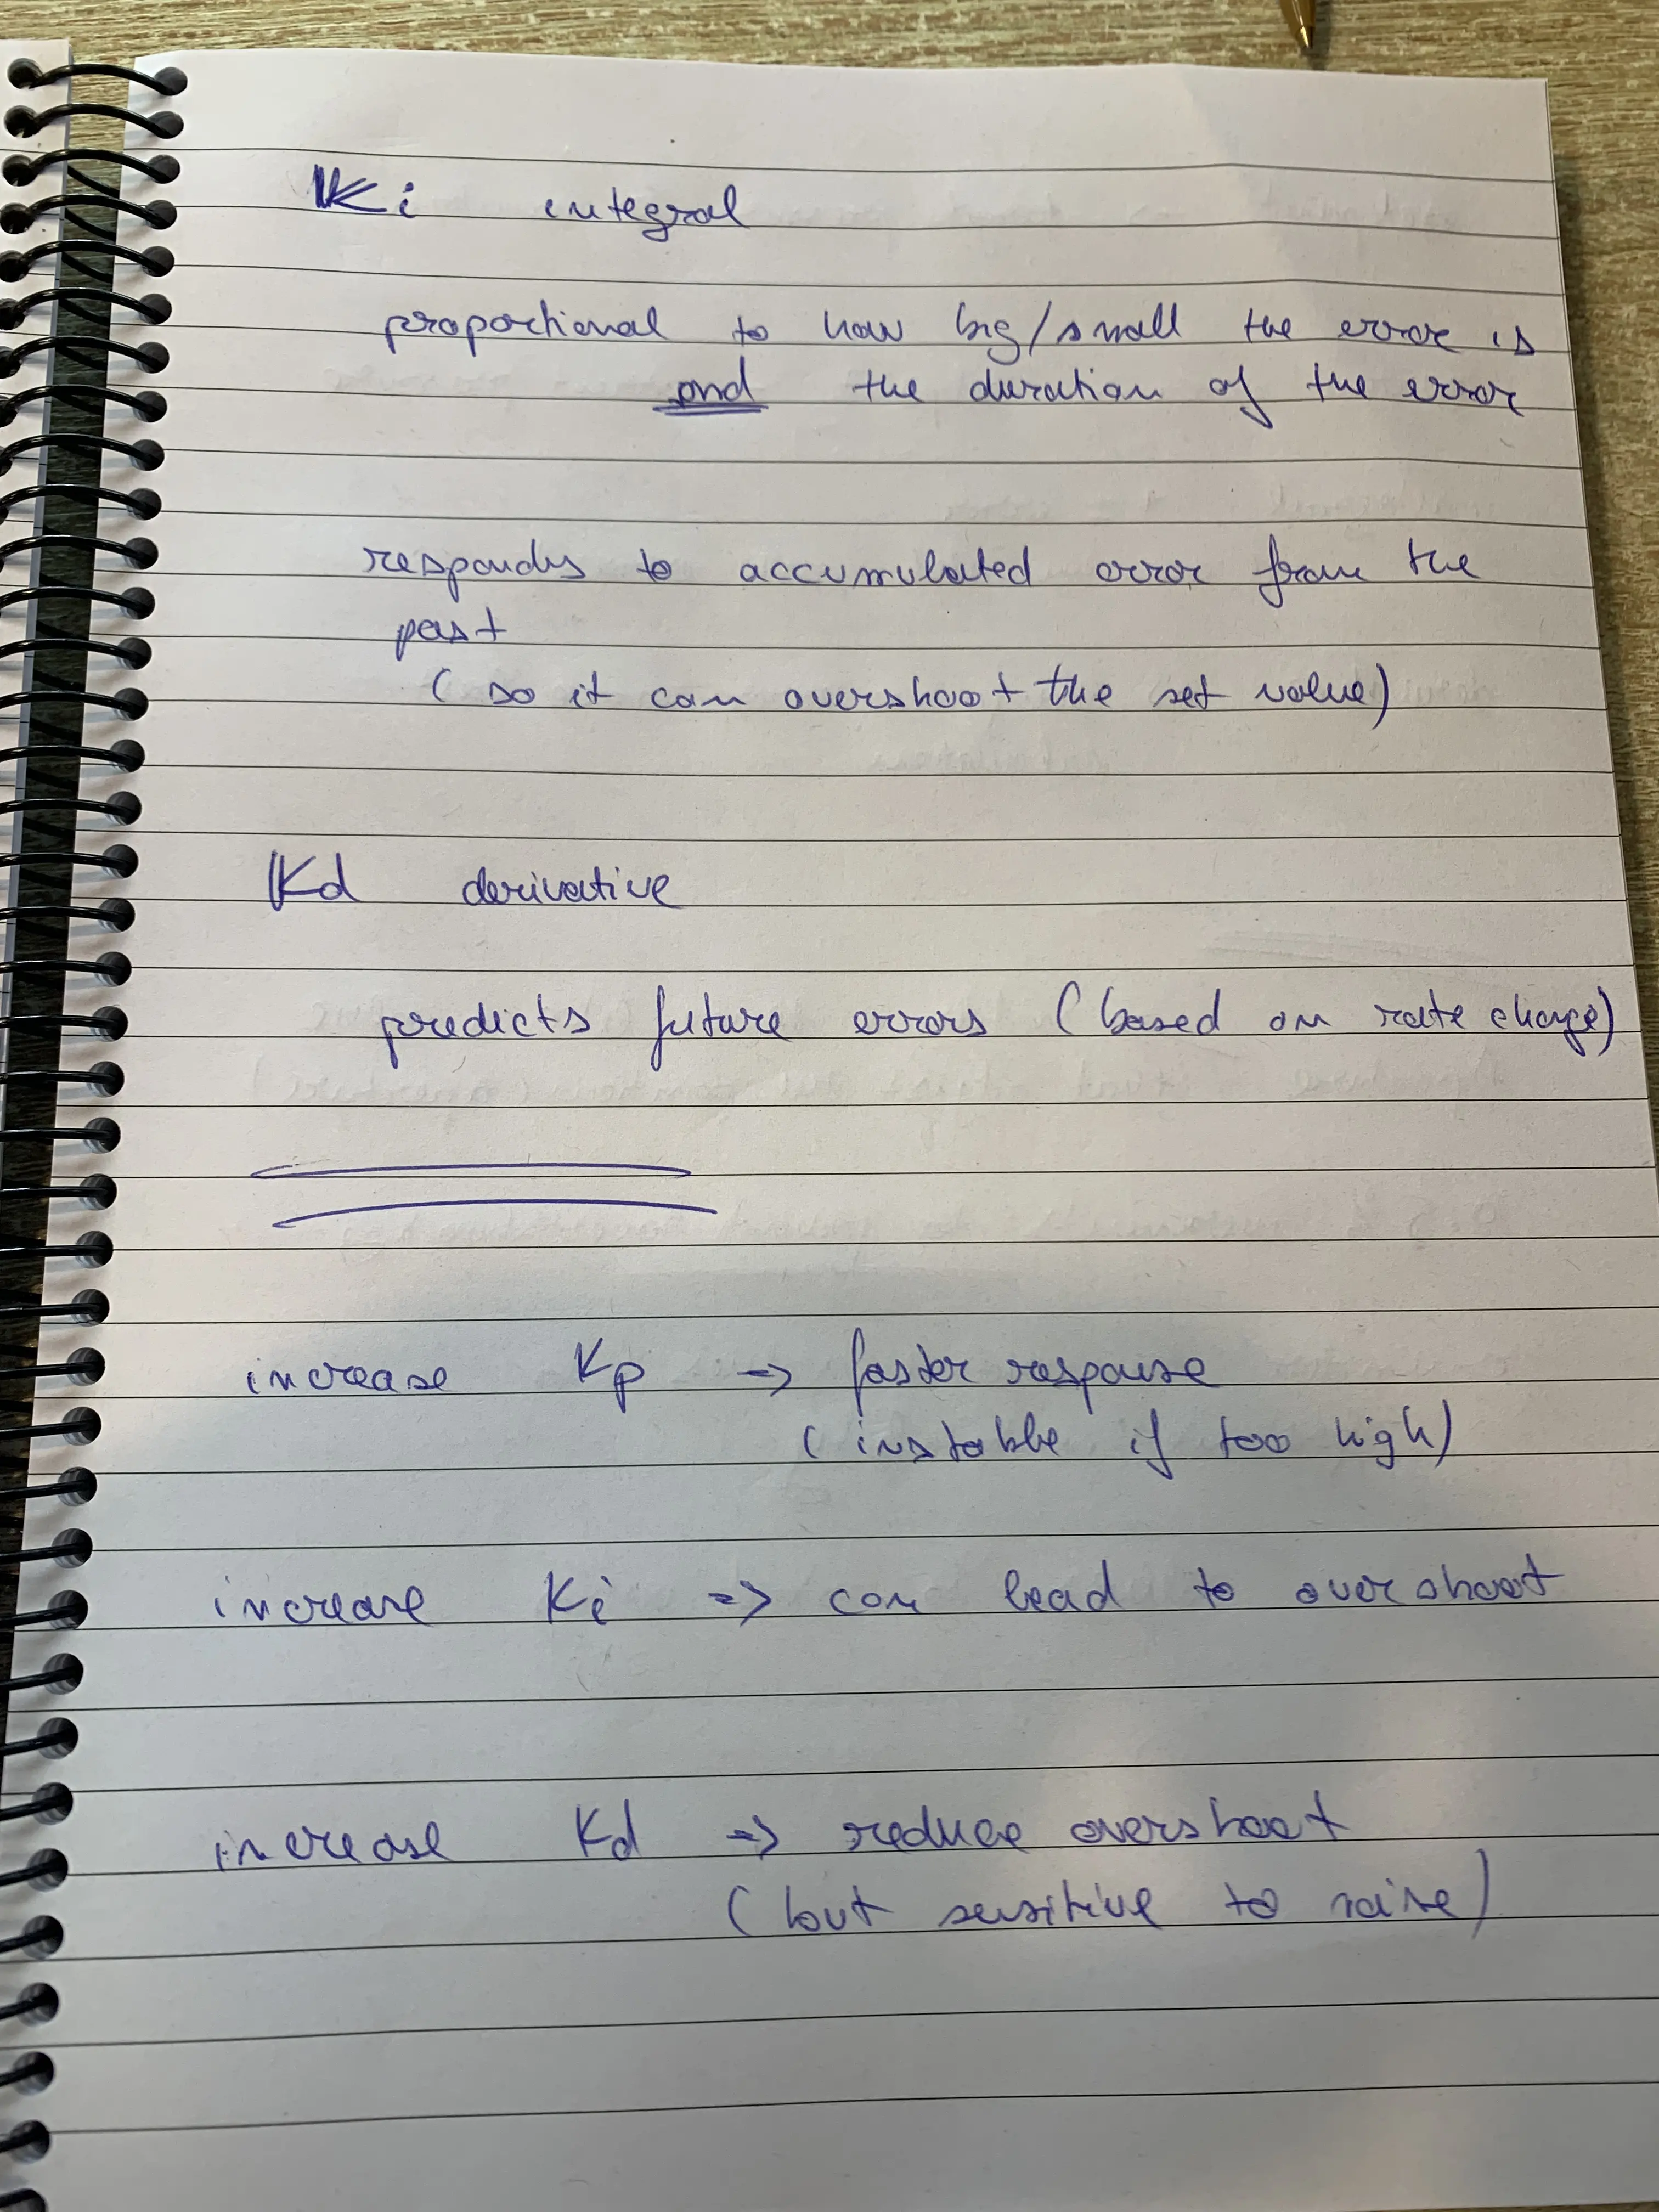 Ki integral
proportional to how big/small the error is
and the duration of the error
responds to accumulated error from the
past
(so it can overshoot the set value)
Kd derivative
predicts future errors (based on rate change)
increase Kp => faster response
(instable if too high)
increase Ki => can lead to overshoot
increase Kd => reduce overshoot
(but sensitive to noise)